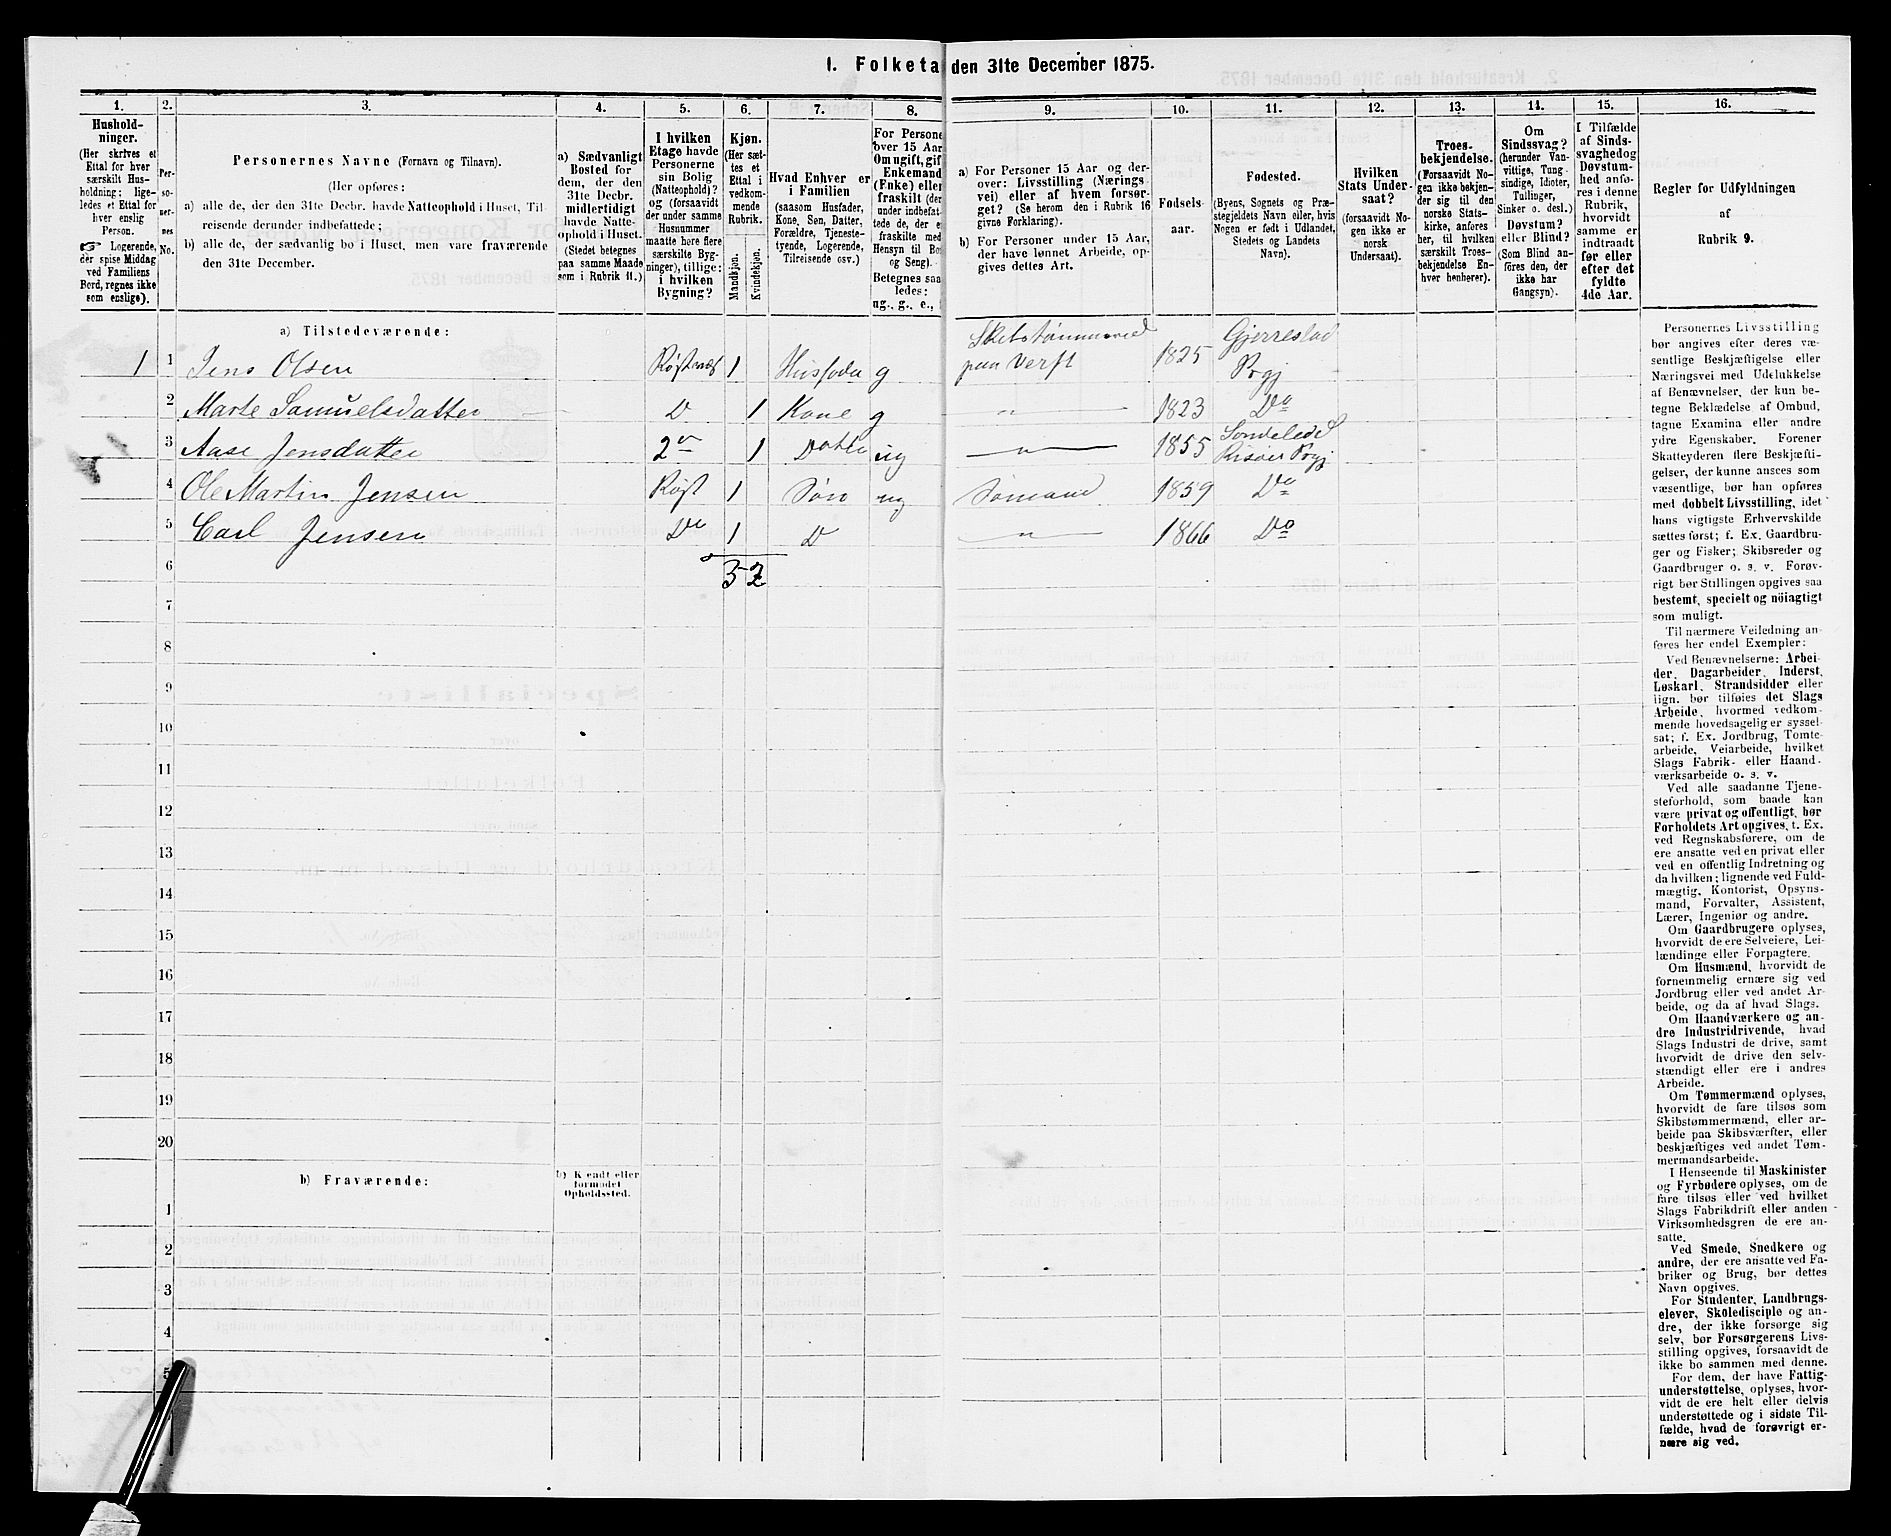 1. Folketa den 31te December 1875.
1. 2. 3. 4. 5. 6. 7. 8. 9. 10. 11. 12. 13. 14. 15. 16.
Hushold-
ninger.
(Her skrives et
Ettal for hver
særskilt Hus-
holdning; lige-
ledes et Ettal for
hver enslig
Person.
☞ Logerende,
der spise Middag
ved Familiens
Bord, regnes ikke
som enslige).
Per-
so-
ner-
nes
No.
Personernes Navne (Fornavn og Tilnavn).
(Her opføres:
a) alle de, der den 31te Decbr. havde Natteophold i Huset, Til-
reisende derunder indbefattede;
b) alle de, der sædvanlig bo i Huset, men vare fraværende
den 31te December.
a) Sædvanligt
Bosted for
dem, der den
31te Decbr.
midlertidigt
havde Natte-
ophold i Huset.
(Stedet betegnes
paa samme Maade
som i Rubrik 11.)
I hvilken
Etage havde
Personerne
sin Bolig
(Natteophold)?
og (forsaavidt
der under samme
Husnummer
maatte høre flere
særskilte Byg-
ninger), tillige:
i hvilken
Bygning?
Kjøn.
(Her sæt-
tes et
Ettal i
vedkom-
mende
Rubrik.
Mandkjøn.
Kvindekjøn.
Hvad Enhver er
i Familien
(saasom Husfader,
Kone, Søn, Datter,
Forældre, Tjeneste-
tyende, Logerende,
Tilreisende osv.)
For Persone
over 15 Aar
Om ugift, gif
Enkemand
(Enke) eller
fraskilt (der
under indbefat-
tede de, der e
fraskilte med
Hensyn til Bo
og Seng).
Betegnes saa
ledes:
ug., g., e.,
a) For Personer 15 Aar og der-
over: Livsstilling (Nærings-
vei) eller af hvem forsør-
get? (Se herom den i Rubrik 16
givne Forklaring).
b) For Personer under 15 Aar,
der have lønnet Arbeide, op-
gives dettes Art.
Fødsels-
aar.
Fødested.
(Byens, Sognets og Præ-
stegjeldets Navn eller, hvis
Nogen er født i Udlandet,
Stedets og Landets
Navn).
Hvilken
Stats Under-
saat?
(forsaavidt No-
gen ikke er
norsk
Undersaat).
Troes-
bekjendelse.
(Forsaavidt No-
gen ikke bekjen-
der sig til den
norske Stats-
kirke, anføres
her, til hvilken
særskilt Troes-
bekjendelse En-
hver henhører).
Om
Sindssvag?
(herunder Van-
vittige, Tung-
sindige, Idioter,
Tullinger,
Sinker o. desl.)
Døvstum?
eller Blind?
(Som Blind an-
føres den, der
ikke har
Gangsyn).
I Tilfælde
af Sinds-
svaghed og
Døvstum-
hed anfø-
res i denne
Rubrik,
hvorvidt
samme er
indtraadt
før eller
efter det
fyldte
4de Aar.
Regler for Udfyldningen
af
Rubrik 9.
a) Tilstedeværende:
1 1 Jens Olsen 1 Husfader g Skibstømmermd paa Verft 1825 Gjerrestad Prgj
2 Marte Samuelsdatter D 1 Kone g " 1823 Do
3 Aase Jensdatter 1 Datter ug " 1855 Søndeled Risøer Prgj
4 Ole Martin Jensen Røst 1 Søn ug Sømand 1859 Do
5 Carl Jensen Do 1 D " 1866 Do
6 3 2
7
8
9
10
11
12
13
14
15
16
17
18
19
20
b) Fraværende:
b) Kjendt eller
formodet
Opholdssted.
1
2
3
4
5
Personernes Livsstilling
bør angives efter deres væ-
sentlige Beskjæftigelse eller
Næringsvei med Udelukkelse
af Benævnelser, der kun be-
tegne Beklædelse af Ombud,
tagne Examina eller andre
ydre Egenskaber. Forener
Skatteyderen flere Beskjæfti-
gelser, der kunne ansees som
væsentlige, bør han opføres
med dobbelt Livsstilling, idet
hans vigtigste Erhvervskilde
sættes først; f. Ex. Gaardbru-
ger og Fisker; Skibsreder og
Gaardbruger o. s. v. Forøv-
rigt bør Stillingen opgives saa
bestemt, specielt og nöiagtigt
som muligt.
Til nærmere Veiledning an-
føres her endel Exempler:
Ved Benævnelserne: Arbei-
der, Dagarbeider, Inderst,
Løskarl, Strandsidder eller
lign. bør tilføies det Slags
Arbeide, hvormed vedkom-
mende hovedsagelig er syssel-
sat; f. Ex. Jordbrug, Tomte-
arbeide, Veiarbeide, hvilket
Slags Fabrik- eller Haand-
værksarbeide o. s. v.
Ved alle saadanne Tjene-
steforhold, som baade kan
være privat og offentligt, bør
Forholdets Art opgives, t. Ex.
ved Regnskabsførere, om de
ere ansatte ved en privat eller
ved en offentlig Indretning og
da hvilken; lignende ved Fuld-
mægtig, Kontorist, Opsyns-
mand, Forvalter, Assistent,
Lærer, Ingeniør og andre.
Om Gaardbrugere oplyses,
hvorvidt de ere Selveiere, Lei-
lændinge eller Forpagtere.
Om Husmænd, hvorvidt de
fornemmelig ernære sig ved
Jordbrug eller ved andet Ar-
beide, og da af hvad Slags.
Om Haandværkere og an-
dre Industridrivende, hvad
Slags Industri de drive, samt
hvorvidt de drive den selv-
stændigt eller ere i andres
Arbeide.
Om Tømmermænd oplyses,
hvorvidt de fare tilsøs som
Skibstømmermænd, eller ar-
beide paa Skibsværfter, eller
beskjæftiges ved andet Tøm-
mermandsarbeide.
I Henseende til Maskinister
og Fyrbødere oplyses, om de
fare tilsøs eller ved hvilket
Slags Fabrikdrift eller anden
Virksomhedsgren de ere an-
satte.
Ved Smede, Snedkere og
andre, der ere ansatte ved Fa-
briker og Brug, bør dettes
Navn opgives.
For Studenter, Landbrugs-
elever, Skoledisciple og an-
dre, der ikke forsørge sig
selv, bør Forsørgerens Livs-
stilling opgives, forsaavidt de
ikke bo sammen med denne.
For dem, der have Fattig-
understøttelse, oplyses, hvor-
vidt de ere helt eller delvis
understøttede og i sidste Til-
fælde, hvad de forøvrigt er-
nære sig ved.